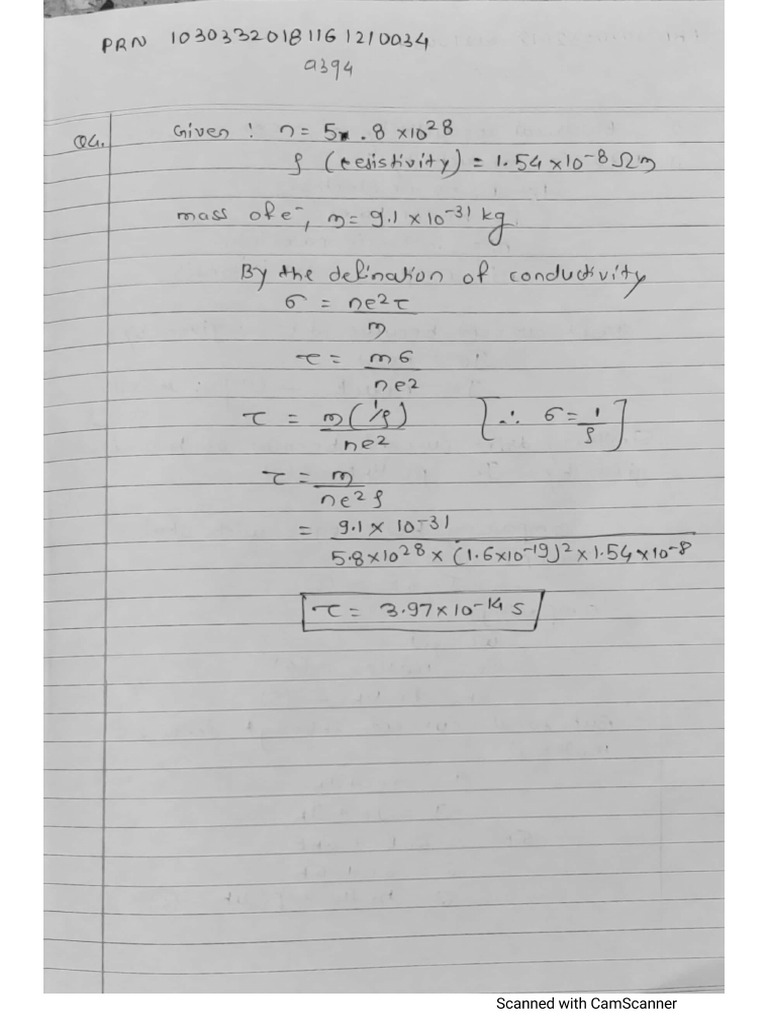 PRN 1030332018116121 0034
a394
Q4. Given : n = 5 . 8 × 10²⁸
ρ (resistivity) = 1.54 × 10⁻⁸ Ωm
mass of e⁻, m = 9.1 × 10⁻³¹ kg
By the defination of conductivity
σ = ne²τ / m
τ = mσ / ne²
τ = m(1/ρ) / ne² [∴ σ = 1/ρ]
τ = m / ne²ρ
= 9.1 × 10⁻³¹ / 5.8×10²⁸ × (1.6×10⁻¹⁹)² × 1.54×10⁻⁸
τ = 3.97×10⁻¹⁴ s
Scanned with CamScanner